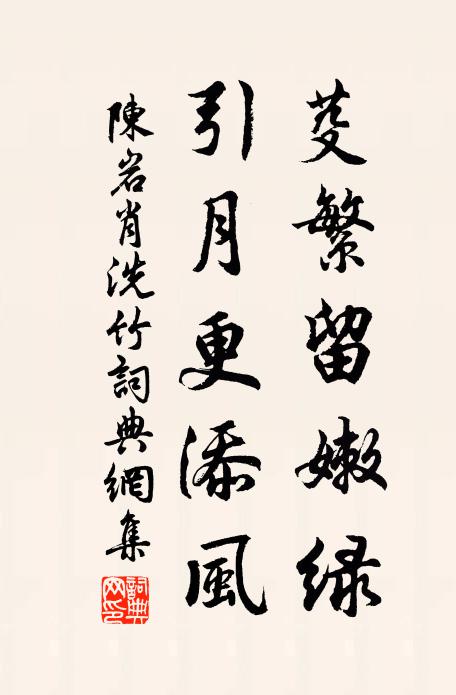 芟繁留嫩绿
引月更添風
陳岩肖洗竹詞典網集
詞典网印